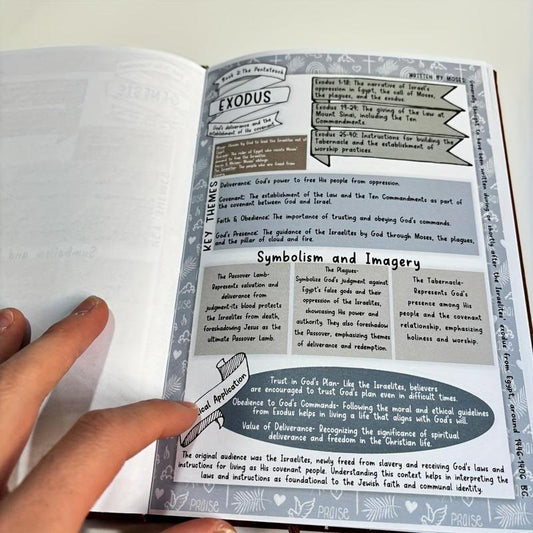 Book 2: The Pentateuch
EXODUS
God's deliverance and the
establishment of His covenant
WRITTEN BY MOSES
Exodus 1-18: The narrative of Israel's
oppression in Egypt, the call of Moses,
the plagues, and the exodus.
Exodus 19-24: The giving of the Law at
Mount Sinai, including the Ten
Commandments.
Exodus 25-40: Instructions for building the
Tabernacle and the establishment of
worship practices.
Moses: Chosen by God to lead the Israelites out of
Pharaoh: The ruler of Egypt who resists Moses'
demand to free the Israelites.
Aaron & Miriam: Moses' siblings
The Israelites: The people who are freed from
KEY THEMES
Deliverance: God's power to free His people from oppression.
Covenant: The establishment of the Law and the Ten Commandments as part of
the covenant between God and Israel.
Faith & Obedience: The importance of trusting and obeying God's commands.
God's Presence: The guidance of the Israelites by God through Moses, the plagues,
and the pillar of cloud and fire.
Symbolism and Imagery
The Passover Lamb-
Represents salvation and
deliverance from
judgment-its blood protects
the Israelites from death,
foreshadowing Jesus as the
ultimate Passover Lamb.
The Plagues-
Symbolize God's judgment against
Egypt's false gods and their
oppression of the Israelites,
showcasing His power and
authority. They also foreshadow
the Passover, emphasizing themes
of deliverance and redemption.
The Tabernacle-
Represents God's
presence among His
people and the covenant
relationship, emphasizing
holiness and worship.
ical Application
Trust in God's Plan- Like the Israelites, believers
are encouraged to trust God's plan even in difficult times.
Obedience to God's Commands- Following the moral and ethical guidelines
from Exodus helps in living a life that aligns with God's will.
Value of Deliverance- Recognizing the significance of spiritual
deliverance and freedom in the Christian life.
The original audience was the Israelites, newly freed from slavery and receiving God's laws and
instructions for living as His covenant people. Understanding this context helps in interpreting the
laws and instructions as foundational to the Jewish faith and communal identity.
Generally thought to have been written during or shortly after the Israelites' exodus from Egypt, around 1446-1406 B.C.
PRAISE
PRAISE